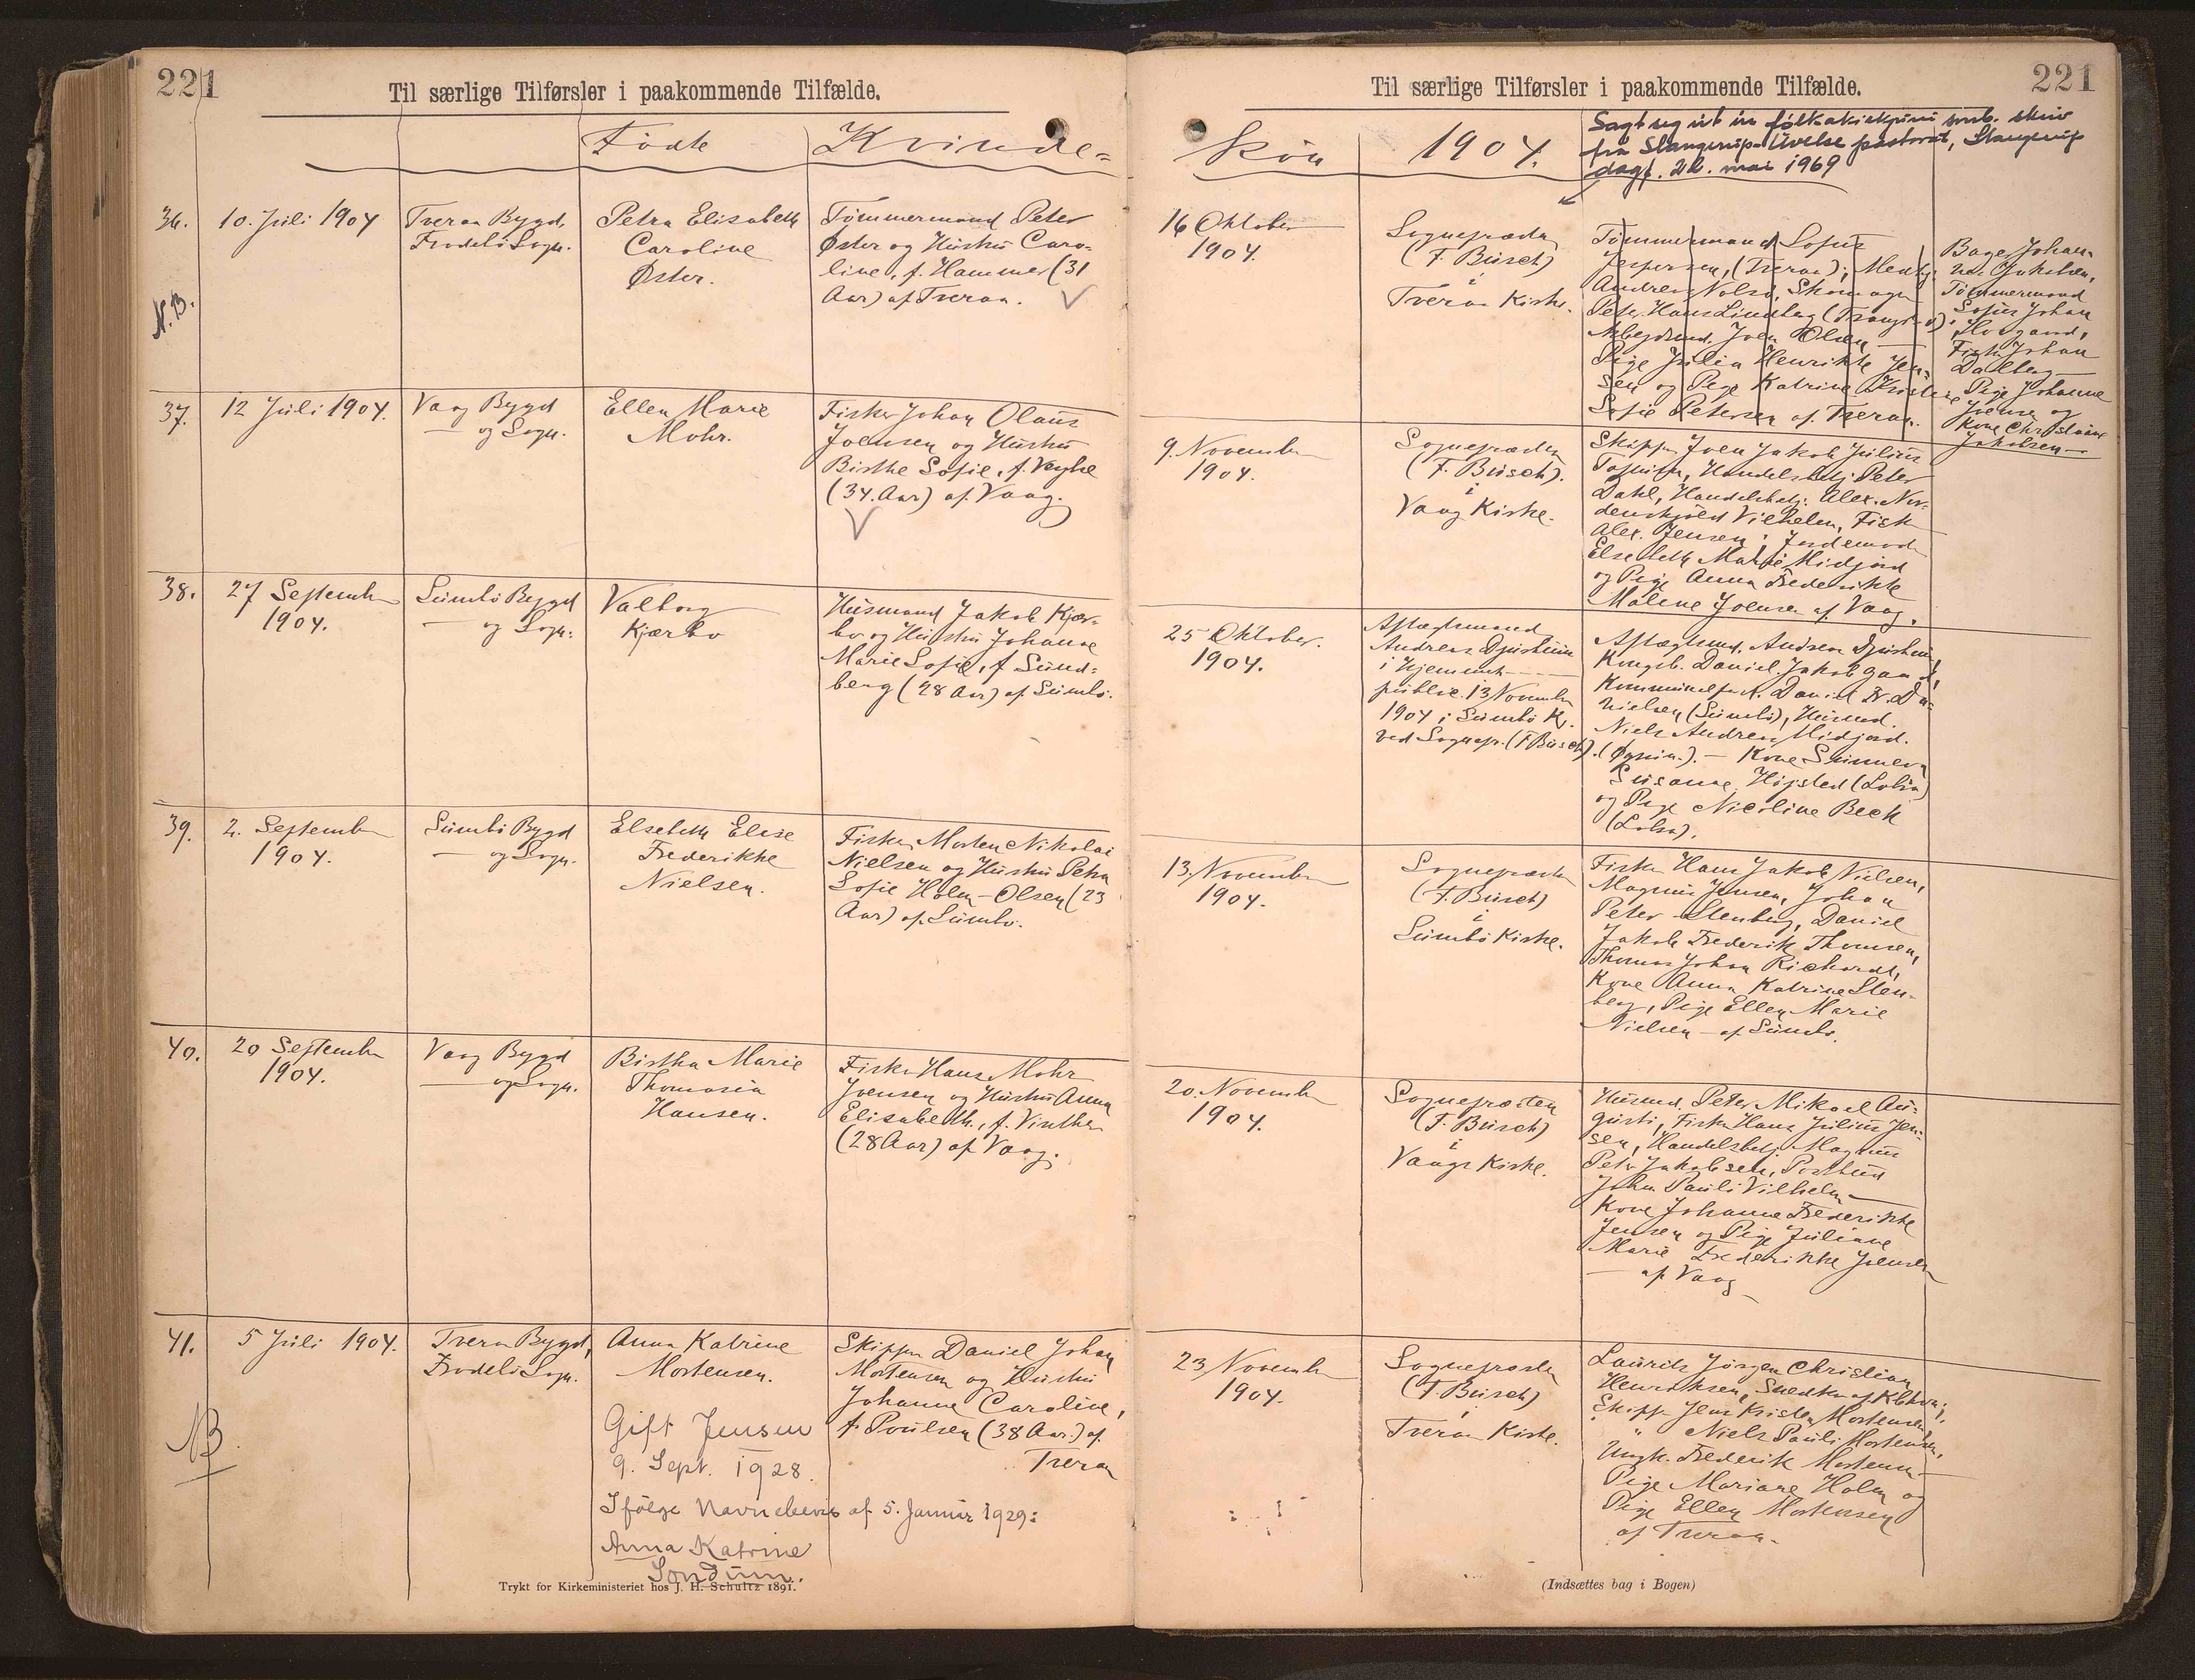 221
Til særlige Tilførsler i paakommende Tilfælde.
Fødte Kvinde=
36.
10. Juli 1904
Tveraa Bygd,
Frodebö Sogn.
Petra Elisabeth
Caroline
Øster.
Tømmermand Peter
Øster og Hustru Caro-
line, f. Hammer (31
Aar) af Tveraa.
N.B.
37.
12 Juli 1904.
Vaag Bygd
— og Sogn.
Ellen Marie
Mohr.
Fisker Johan Olaus
Joensen og Hustru
Birthe Sofie, f. Vejhe
(34. Aar) af Vaag.
38.
27 September
1904.
Sumbö Bygd
— og Sogn.
Valborg
Kjærbo
Husmand Jakob Kjær-
bo og Hustru Johanne
Marie Sofie, f. Sund=
berg (28 Aar) af Sumbö.
39.
2. September
1904.
Sumbö Bygd
— og Sogn.
Elsebeth Elise
Frederikke
Nielsen.
Fisker Morten Nikolai
Nielsen og Hustru Petra
Sofie Holm-Olsen (23
Aar) af Sumbö.
40.
20 September
1904.
Vaag Bygd
— og Sogn.
Birtha Marie
Thomasia
Hansen.
Fisker Hans Mohr
Joensen og Hustru Anna
Elisabeth, f. Vinther
(28 Aar) af Vaag.
41.
5 Juli 1904.
Tveraa Bygd,
Frodebö Sogn.
Anna Katrine
Mortensen.
Skipper Daniel Johan
Mortensen og Hustru
Johanne Caroline,
f. Poulsen (38 Aar.) af
Tveraa
NB.
Gift Jensen
9. Sept. 1928.
Ifölge Navnebevis af 5. Januar 1929:
Anna Katrine
Sondum.
Trykt for Kirkeministeriet hos J. H. Schultz 1891.
221
Til særlige Tilførsler i paakommende Tilfælde.
Køn 1904.
Sagt seg út úr fólkakirkjuni smb. skriv
frá Slangerup-Uvelse pastorat, Slangerup
dagf. 22. mai 1969
16 Oktober
1904.
Sognepræsten
(F. Busch)
i
Tveraa Kirke.
Tømmermand Sofus
Jespersen, (Tveraa);
Andreas Nolsö, Skomager
Peter Hans Lindberg
Arbejdsmd. Joen Olsen —
Pige Julia Henrikke Jen-
sen og Pige Katrine Kristine
Sofie Petersen af Tveraa.
Bager Johan-
nes Jakobsen,
Tømmermand
Sofus Johan
Hovgaard,
Fisker Johan
Dalberg —
Pige Johanne
Joensen og
Kone Christiane
Jakobsen —
9. November
1904.
Sognepræsten
(F. Busch).
i
Vaag Kirke.
Skipper Joen Jakob Julius
Handelsbetj. Peter
Dahl, Handelsbetj. Alex. Nor-
denskjöld Vilhelm, Fisk
Alex. Jensen; Jordemoder
Elsebeth Marie Midjord
og Pige Anna Frederikke
Malene Joensen af Vaag.
25 Oktober.
1904.
Aftægtsmand
Andreas Djurhuus
i Hjemmet —
public. 13 November
1904 i Sumbö K.
ved Sognepr. (F Busch).
Aftægtsmd. Andreas Djurhuus,
Kongsb. Daniel Jakob Gaard,
Daniel
nielsen (Sumbö), Husmd.
Niels Andreas Midjord.
— Kone Sunneva
Susanne Höjsted (Lobra)
og Pige Nicoline Beck
(Lobra).
13 November
1904.
Sognepræsten
(F. Busch)
i
Sumbö Kirke.
Fisker Hans Jakob Nielsen,
Magnus Jensen, Johan
Peter Stenberg, Daniel
Jakob Frederik Thomsen,
Thomas Johan Richardt,
Kone Anna Katrine Sten-
berg, Pige Ellen Marie
Nielsen — af Sumbö.
20. November
1904.
Sognepræsten
(F. Busch)
i
Vaags Kirke.
Husmd. Peter Mikael Au-
gusti, Fisker Hans Julius Jen-
sen, Handelsbetj. Magnus
Peter Jakobsen, Postbud
John Pauli Vilhelm —
Kone Johanne Frederikke
Jensen og Pige Juliane
Marie Frederikke Joensen
— af Vaag —
23 November
1904.
Sognepræsten
(F. Busch)
i
Tveraa Kirke.
Laurits Jörgen Christian
Henriksen, Snedker af
Skipper Jens Kristen Mortensen,
" Niels Pauli Mortensen,
Ungk. Frederik Mortensen —
Pige Mariane Holm og
Pige Ellen Mortensen
af Tveraa.
(Indsættes bag i Bogen)